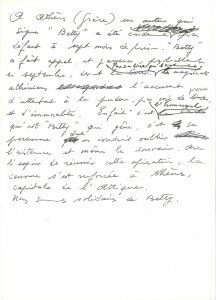 A Athènes (Grèce) un auteur qui
signe "Betty" a été condamné par
défaut à sept mois de prison. "Betty"
a fait appel et
en septembre, devant les magistrats
athéniens l'accusant
d'attentat à la pudeur, par voie de
et d'immoralité. En fait c'est
qui est "Betty" qui gêne, c'est sa
personne dont on voudrait oublier
l'existence et même le souvenir. Avec
l'espoir de réussir cette opération, la
censure s'est renforcée à Athènes,
capitale de l'Attique.
Nous sommes solidaires de Betty.